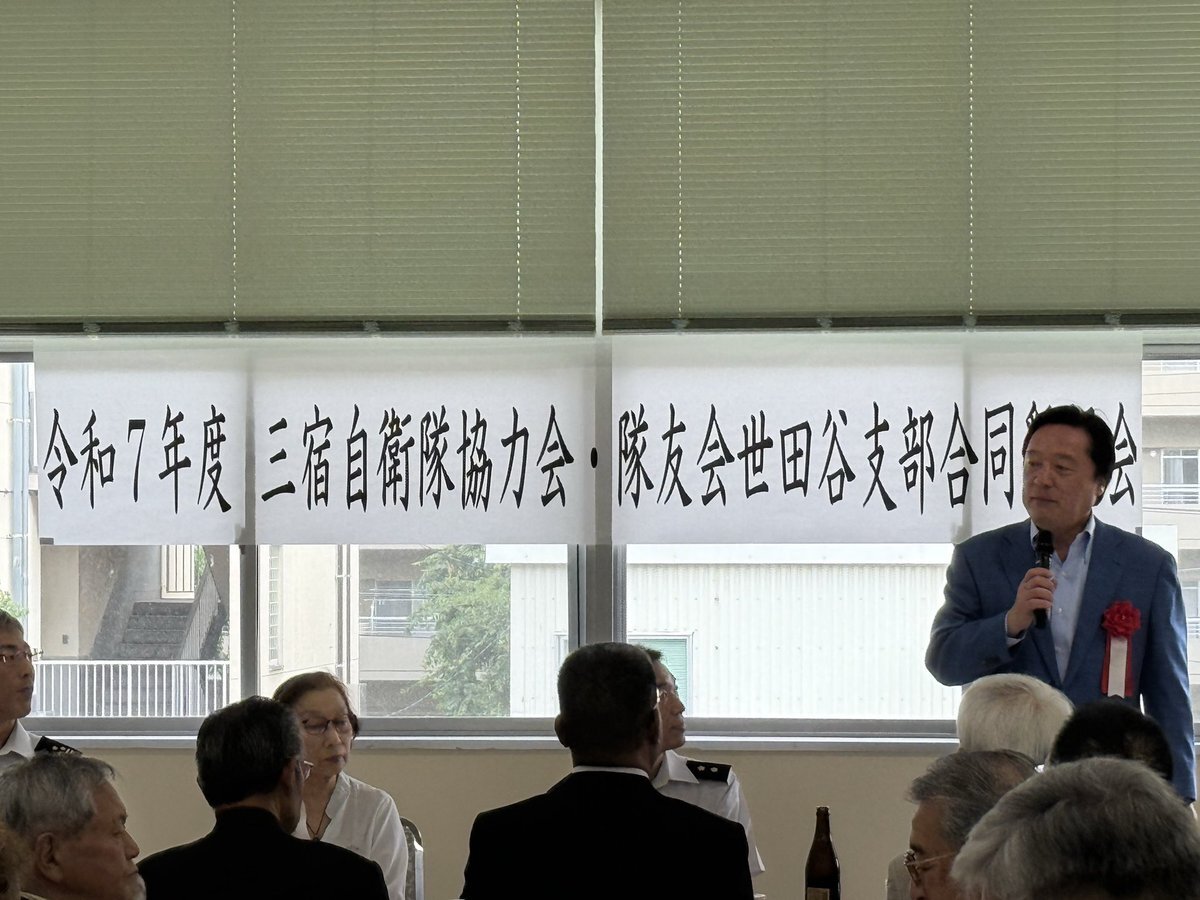 令和7年度 三宿自衛隊協力会・隊友会世田谷支部合同 会